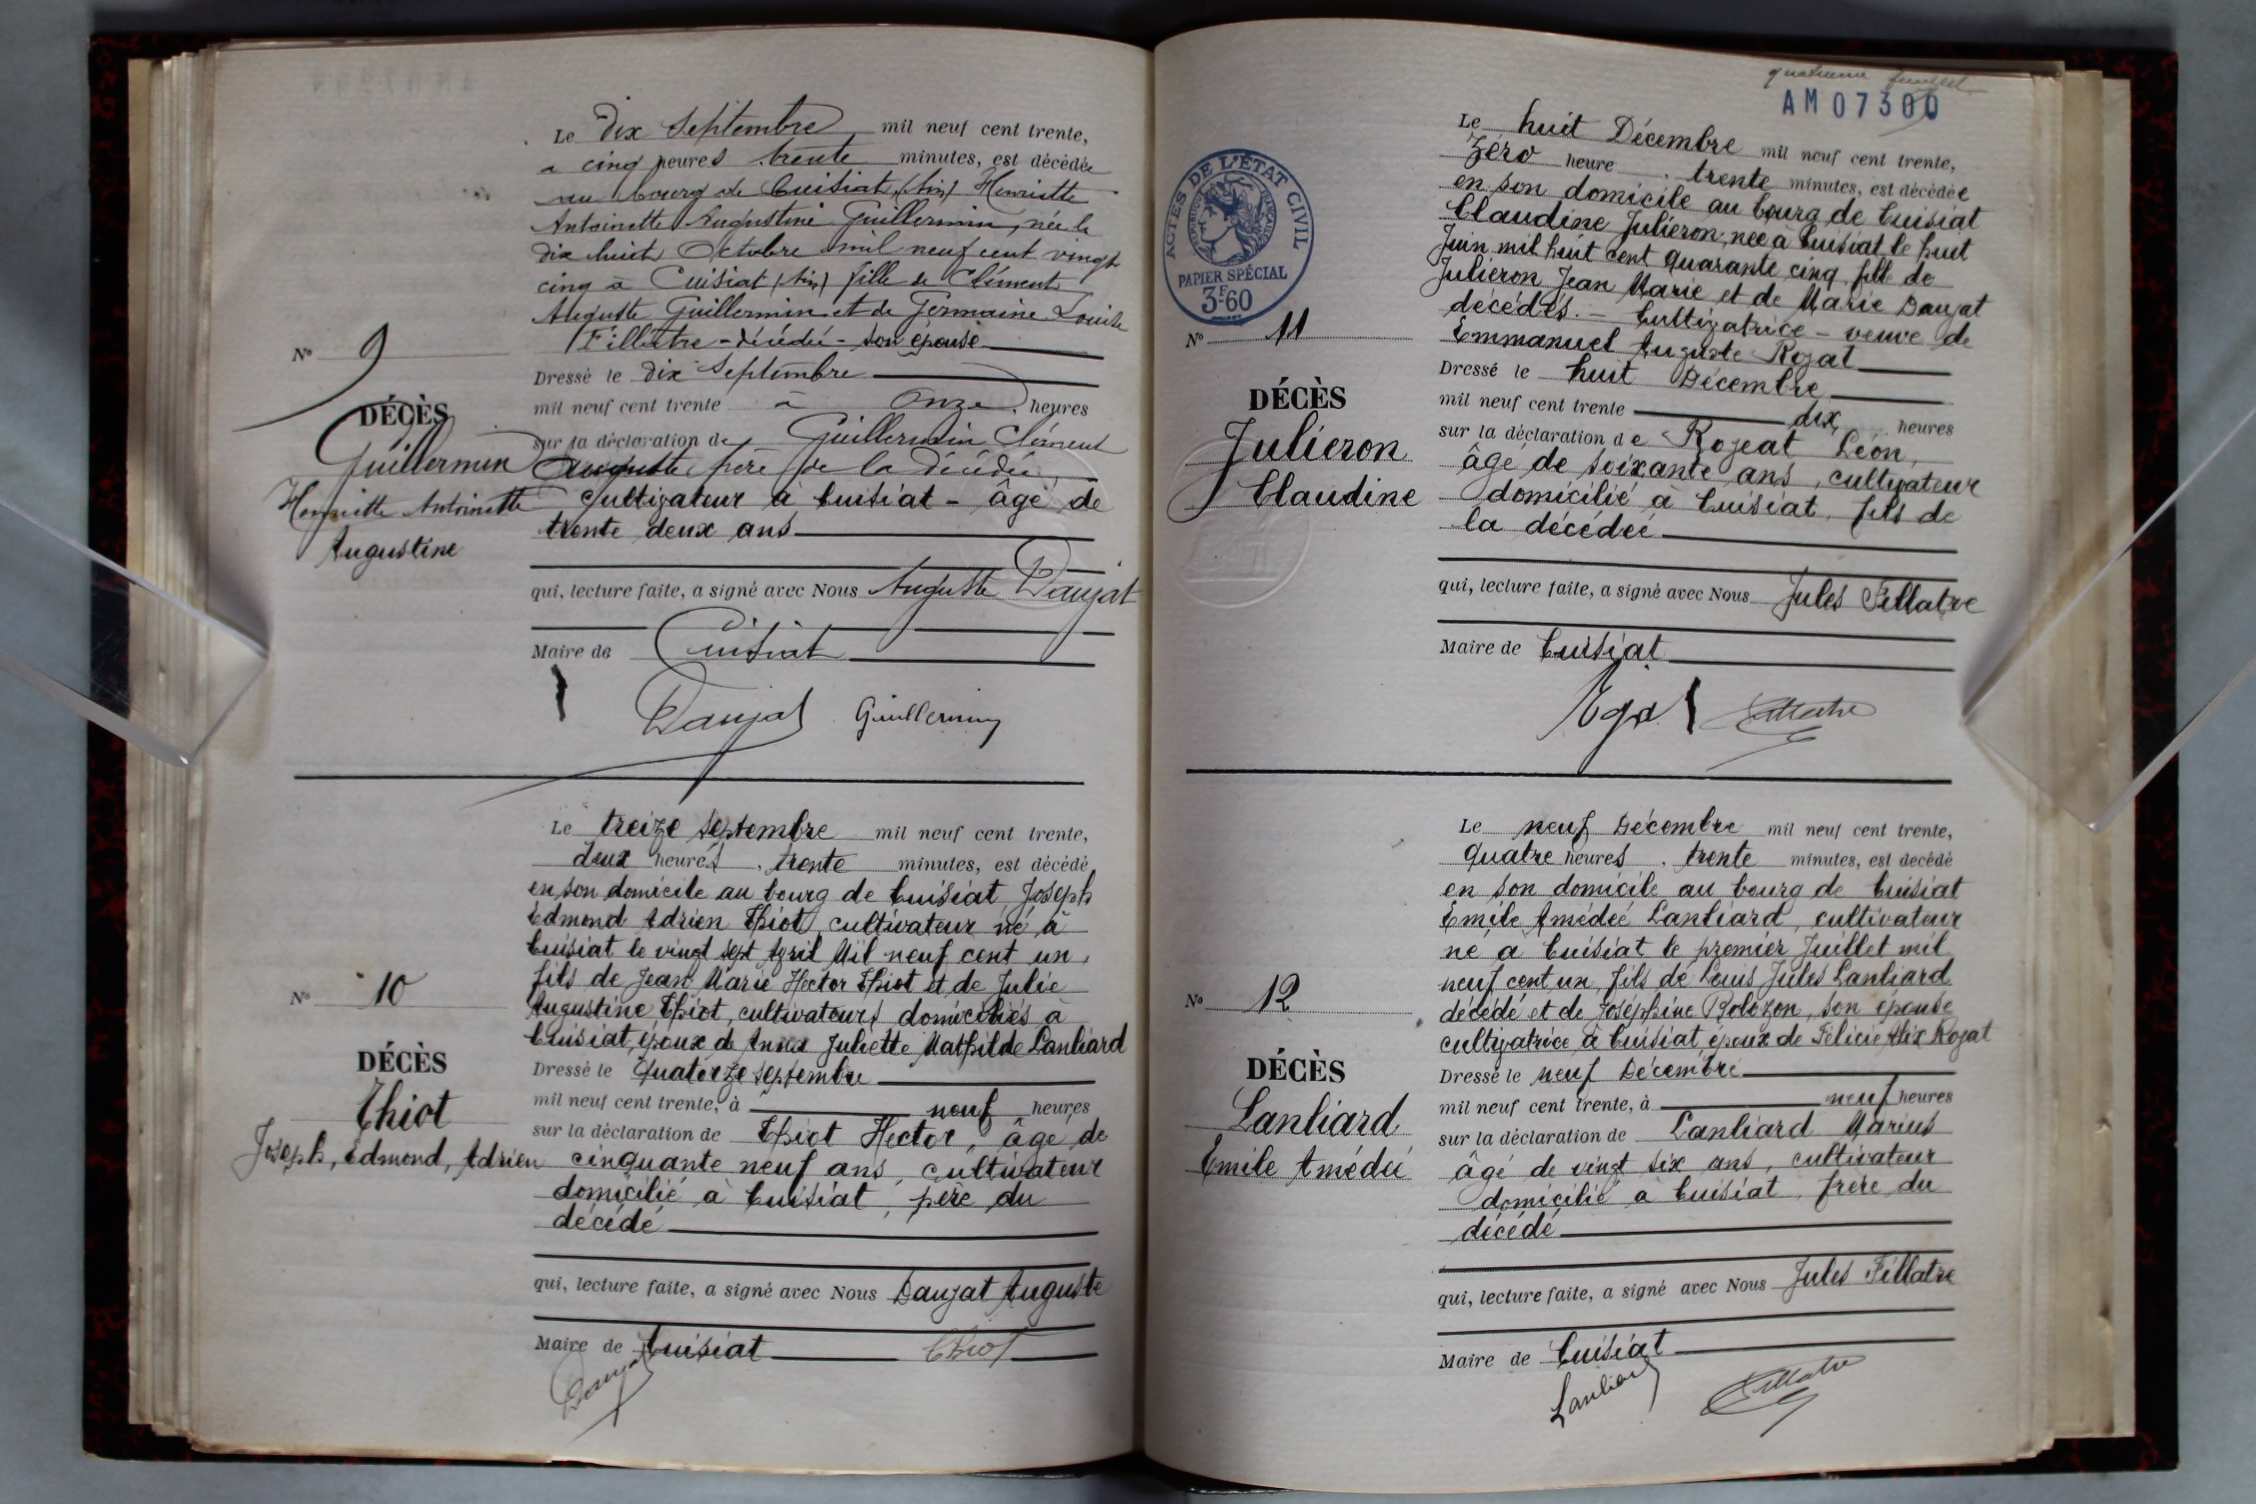 Le dix Septembre mil neuf cent trente,
à cinq heures trente minutes, est décédée
au bourg de Cuisiat (Ain) Henriette
Antoinette Augustine Guillermin, née le
dix huit Octobre mil neuf cent vingt
cinq à Cuisiat (Ain) fille de Clément
Auguste Guillermin et de Germaine Louise
Fillatre - décédée - son épouse
N° 9
DÉCÈS
Guillermin
Henriette Antoinette
Augustine
Dressé le dix Septembre
mil neuf cent trente à Onze heures
sur la déclaration de Guillermin Clément
Auguste père de la décédée
Cultivateur à Cuisiat - âgé de
trente deux ans
qui, lecture faite, a signé avec Nous Auguste Daujat
Maire de Cuisiat
Daujat Guillermin
Le treize septembre mil neuf cent trente,
deux heures trente minutes, est décédé
en son domicile au bourg de Cuisiat, Joseph
Edmond Adrien Thiot, cultivateur né à
Cuisiat le vingt sept Avril Mil neuf cent un,
fils de Jean Marie Hector Thiot et de Julie
Augustine Thiot, cultivateurs domiciliés à
Cuisiat, époux de Anna Juliette Mathilde Lanliard
N° 10
DÉCÈS
Thiot
Joseph, Edmond, Adrien
Dressé le Quatorze septembre
mil neuf cent trente, à neuf heures
sur la déclaration de Thiot Hector, âgé de
cinquante neuf ans, cultivateur
domicilié à Cuisiat, père du
décédé
qui, lecture faite, a signé avec Nous Daujat Auguste
Maire de Cuisiat Thiot
Daujat
quatrième feuillet
AM07300
ACTES DE L'ÉTAT CIVIL
PAPIER SPÉCIAL
3F60
Le huit Décembre mil neuf cent trente,
Zéro heure trente minutes, est décédée
en son domicile au bourg de Cuisiat
Claudine Julieron, née à Cuisiat le huit
Juin mil huit cent quarante cinq, fille de
Julieron Jean Marie et de Marie Daujat
décédés. - Cultivatrice - veuve de
Emmanuel Auguste Rojat
N° 11
DÉCÈS
Julieron
Claudine
Dressé le huit Décembre
mil neuf cent trente dix heures
sur la déclaration de Rojeat Léon,
âgé de soixante ans, cultivateur
domicilié à Cuisiat, fils de
la décédée
qui, lecture faite, a signé avec Nous Jules Fillatre
Maire de Cuisiat
Fillatre
Le neuf Décembre mil neuf cent trente,
Quatre heures trente minutes, est décédé
en son domicile au bourg de Cuisiat
Emile Amédée Lanliard, cultivateur
né à Cuisiat le premier Juillet mil
neuf cent un, fils de Louis Jules Lanliard
décédé et de Joséphine Bolozon, son épouse
cultivatrice à Cuisiat époux de Félicie Alix Rojat
N° 12
DÉCÈS
Lanliard
Emile Amédée
Dressé le neuf Décembre
mil neuf cent trente, à neuf heures
sur la déclaration de Lanliard Marius
âgé de vingt six ans, cultivateur
domicilié à Cuisiat, frère du
décédé
qui, lecture faite, a signé avec Nous Jules Fillatre
Maire de Cuisiat
Lanliard Fillatre